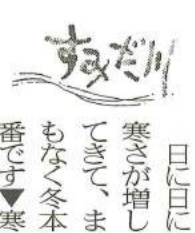 すみだ川
日に日に
寒さが増し
てきて、ま
もなく冬本
番です▼寒